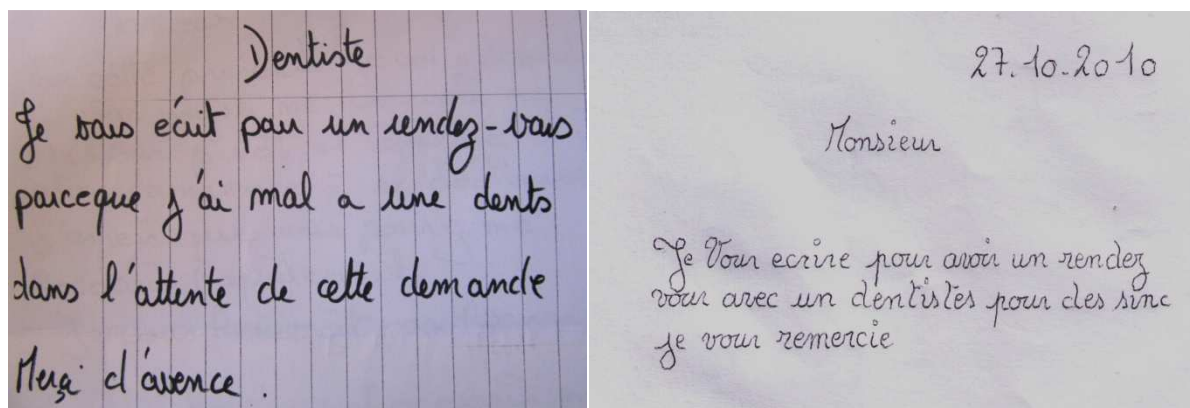 Dentiste
Je vous écrit pour un rendez-vous
parceque j'ai mal a une dents
dans l'attente de cette demande
Merçi d'avence.
27.10.2010
Monsieur
Je Vour ecrire pour avoir un rendez
vour avec un dentistes pour des sinc
je vour remercie